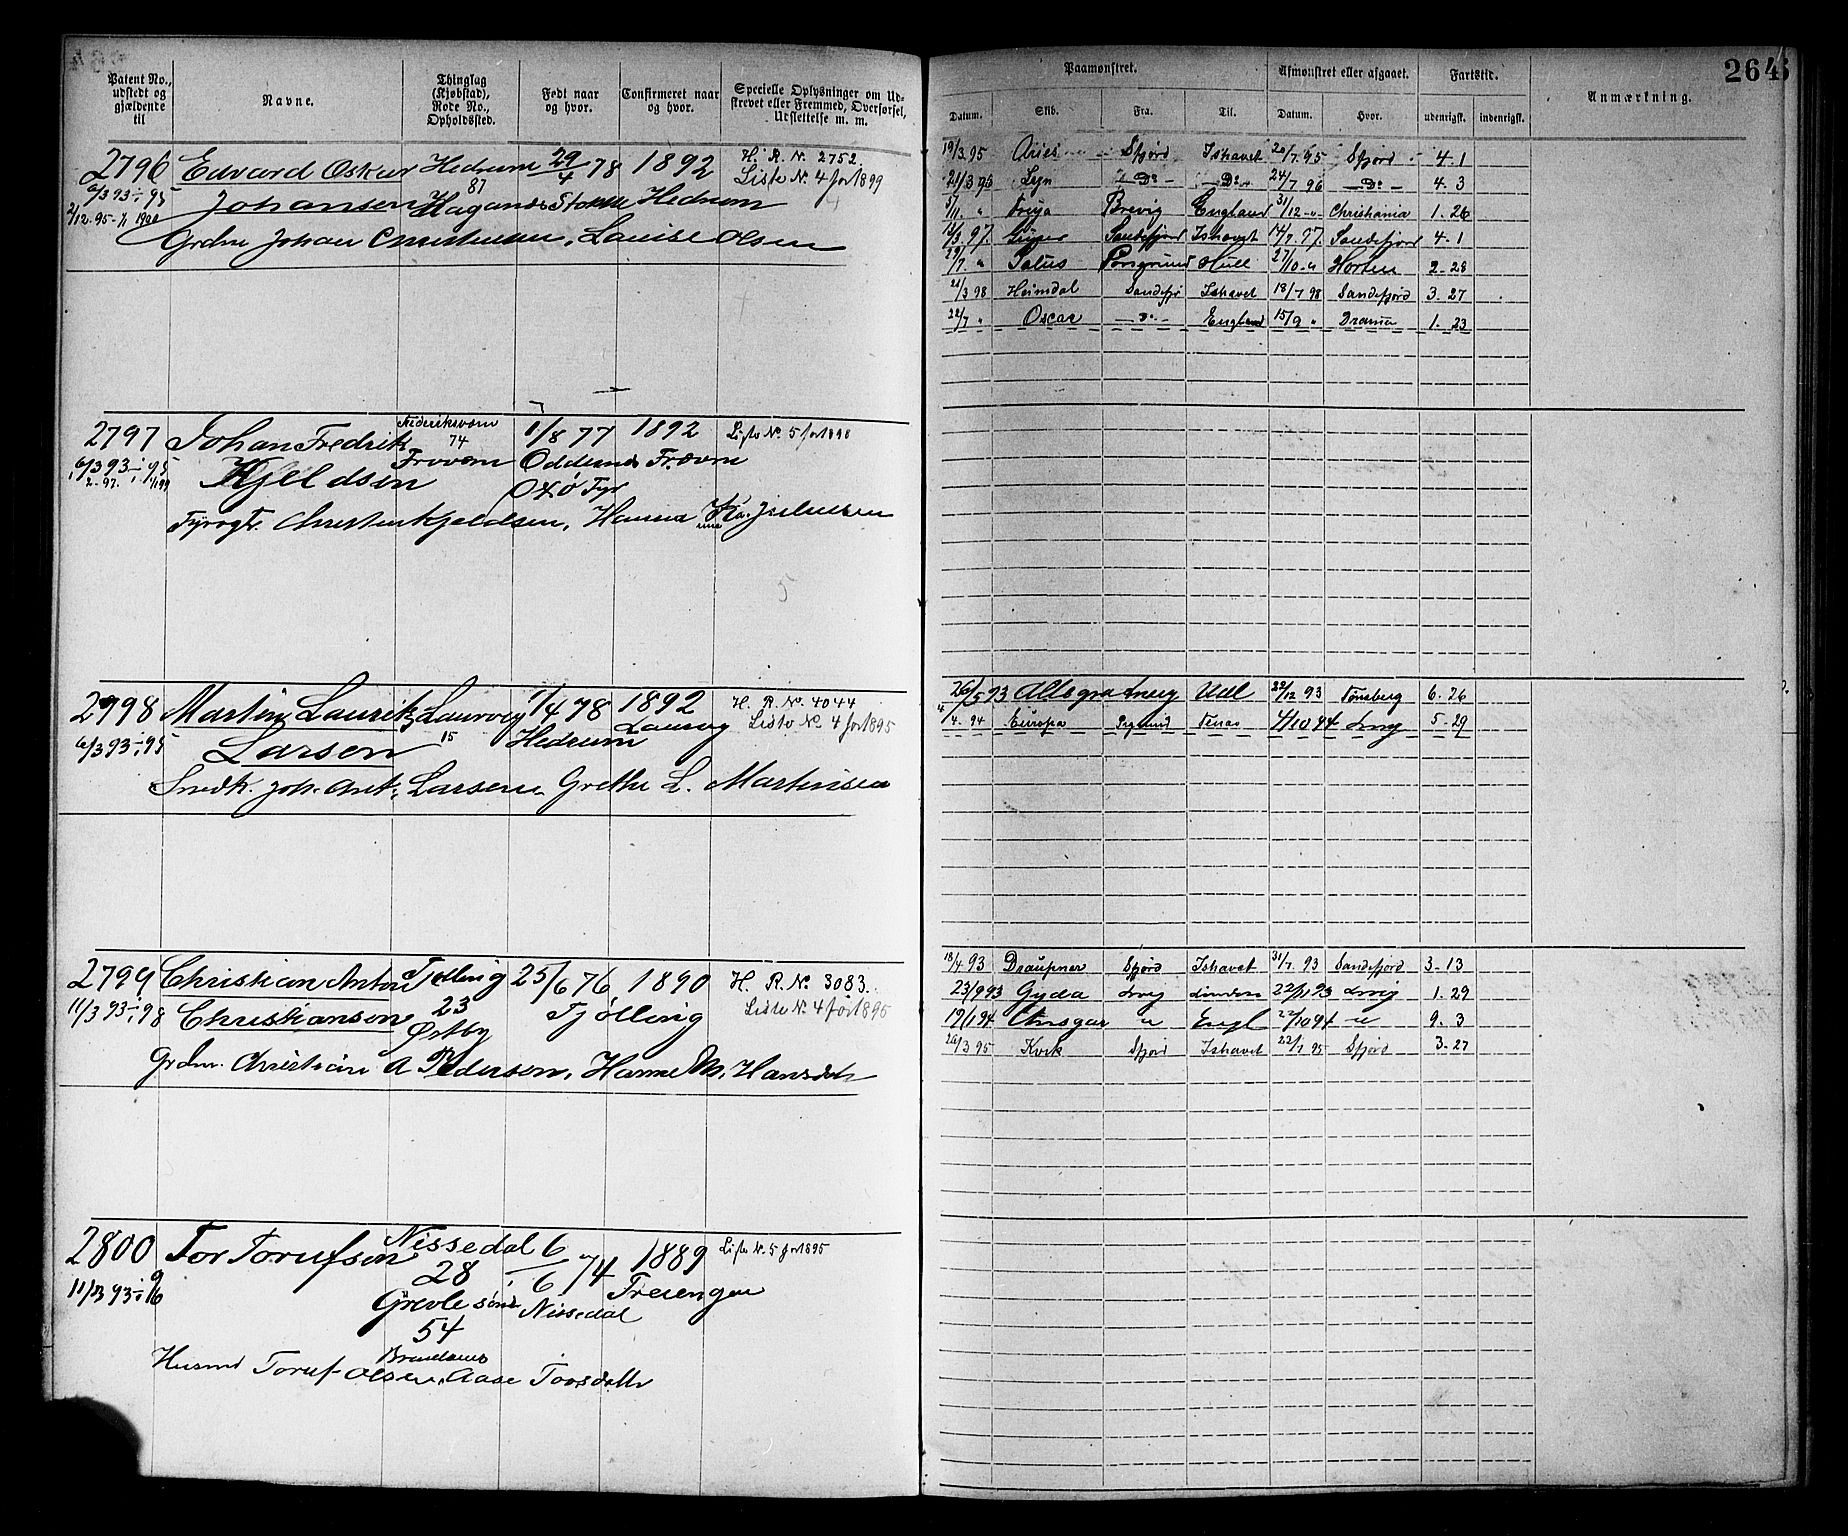 Patent No., udstedt og gjældende til
Navne.
Thinglag (Kjøbstad), Rode No., Opholdssted.
Født naar og hvor.
Confirmeret naar og hvor.
Specielle Oplysninger om Udskrevet eller Fremmed, Oversørsel, Udslettelse m. m.
Paamønstret.
Afmønstret eller afgaaet.
Fartstid.
Anmærkning.
264
Datum. Skib. Fra. Til. Datum. Hvor. udenrigsk. indenrigsk.
2796 Edvard Oskar Hedrum 29/4 78 1892 H. R. N. 2752.
6/3 93 ÷ 95 87 Liste N. 4 for 1899
2/12. 95 - 1/1 1900 Johansen Hedrum
Grdm Johan Christensen, Louise Olsen
19/3 95 Aries Sfjord Ishavet 20/7 95 Sfjord 4. 1
21/3 96 Do Do 24/7 96 Do 4. 3
Freya Brevig England 31/12 Christiania 1. 26
97. Sandefjord Ishavet 14/7. 97. Sandefjord 4. 1
29/7. " Porsgrund Hull 27/10 " Horten 2. 28
21/3 98 Heimdal Sandefj Ishavet 18/7 98 Sandefjord 3. 27
22/7 " Oscar Do England 15/9 " Drammen 1. 23
2797 Johan Fredrik Frederiksværn 1/8 77 1892 Liste No. 5 for 1898
74
6/3 93 ÷ 1/1 95 Kjeldsen Fr.værn Fr.værn
Oxø Fyr
Fyrvogt. Christen Kjeldsen, Hanna
2798 Martin Laurik Laurvig 1/4 78 1892 H. R. No. 4044
6/3 93 ÷ 95 Larsen 15 Hedrum Laurvig Liste No. 4 for 1895
Snedk. Joh. Ant. Larsen. Grethe L. Martinsen
26/5 93 Allegra Hull 22/12 93 Tønsberg 6. 26
4/4. 94 Europa 1/10 94 Lvig 5. 29
2799 Christian Anton Tjølling 25/6 76 1890 H. R. No. 3083.
11/3 93 ÷ 1/1 98 Christiansen 23 Tjølling Liste N. 4 for 1895
Østby
Grdm. Christian A Pedersen, Hanne M. Hansdtr
18/4 93 Draupner Sfjord Ishavet 31/7. 93 Sandefjord 3. 13
23/9 93 Gyda Lvig London 22/11 93 Lvig 1. 29
19/1 94 Ansgar " Engl 22/10 94 " 9. 3
26/3 95 Kvik Sfjord Ishavet 22/7 95 Sfjord 3. 27
2800 Tor Torufsen Nissedal 6/6 74 1889 Liste N. 5 for 1895
28
11/3 93 ÷ Nissedal Treungen
54
Husmd Toruf Olsen, Aase Torsdatter